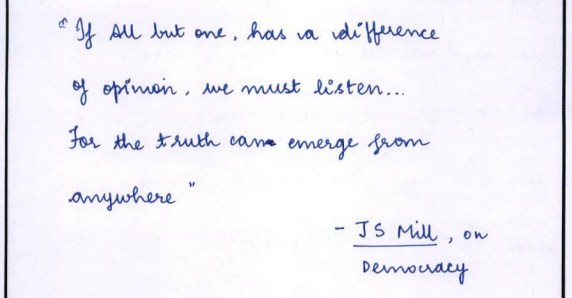 "If All but one, has a difference
of opinion, we must listen...
For the truth can emerge from
anywhere"
- JS Mill, on
Democracy